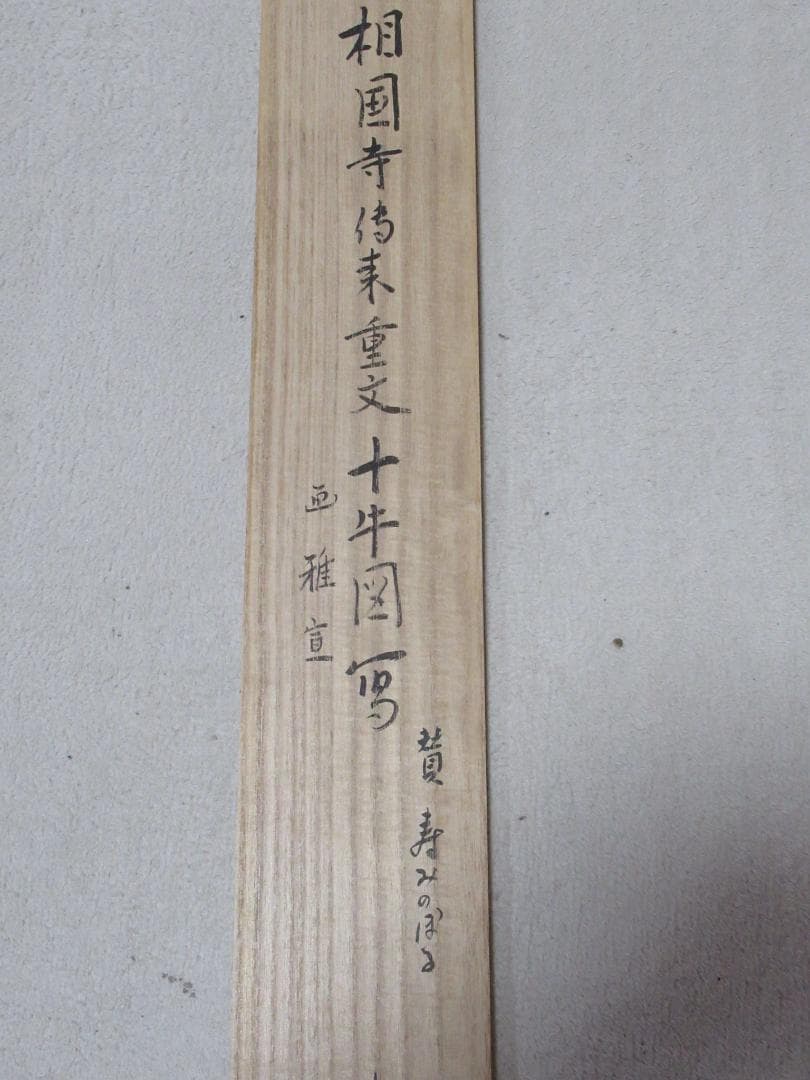 相国寺傳来重文十牛図写
賛 寿みのぼる
画 雅宣